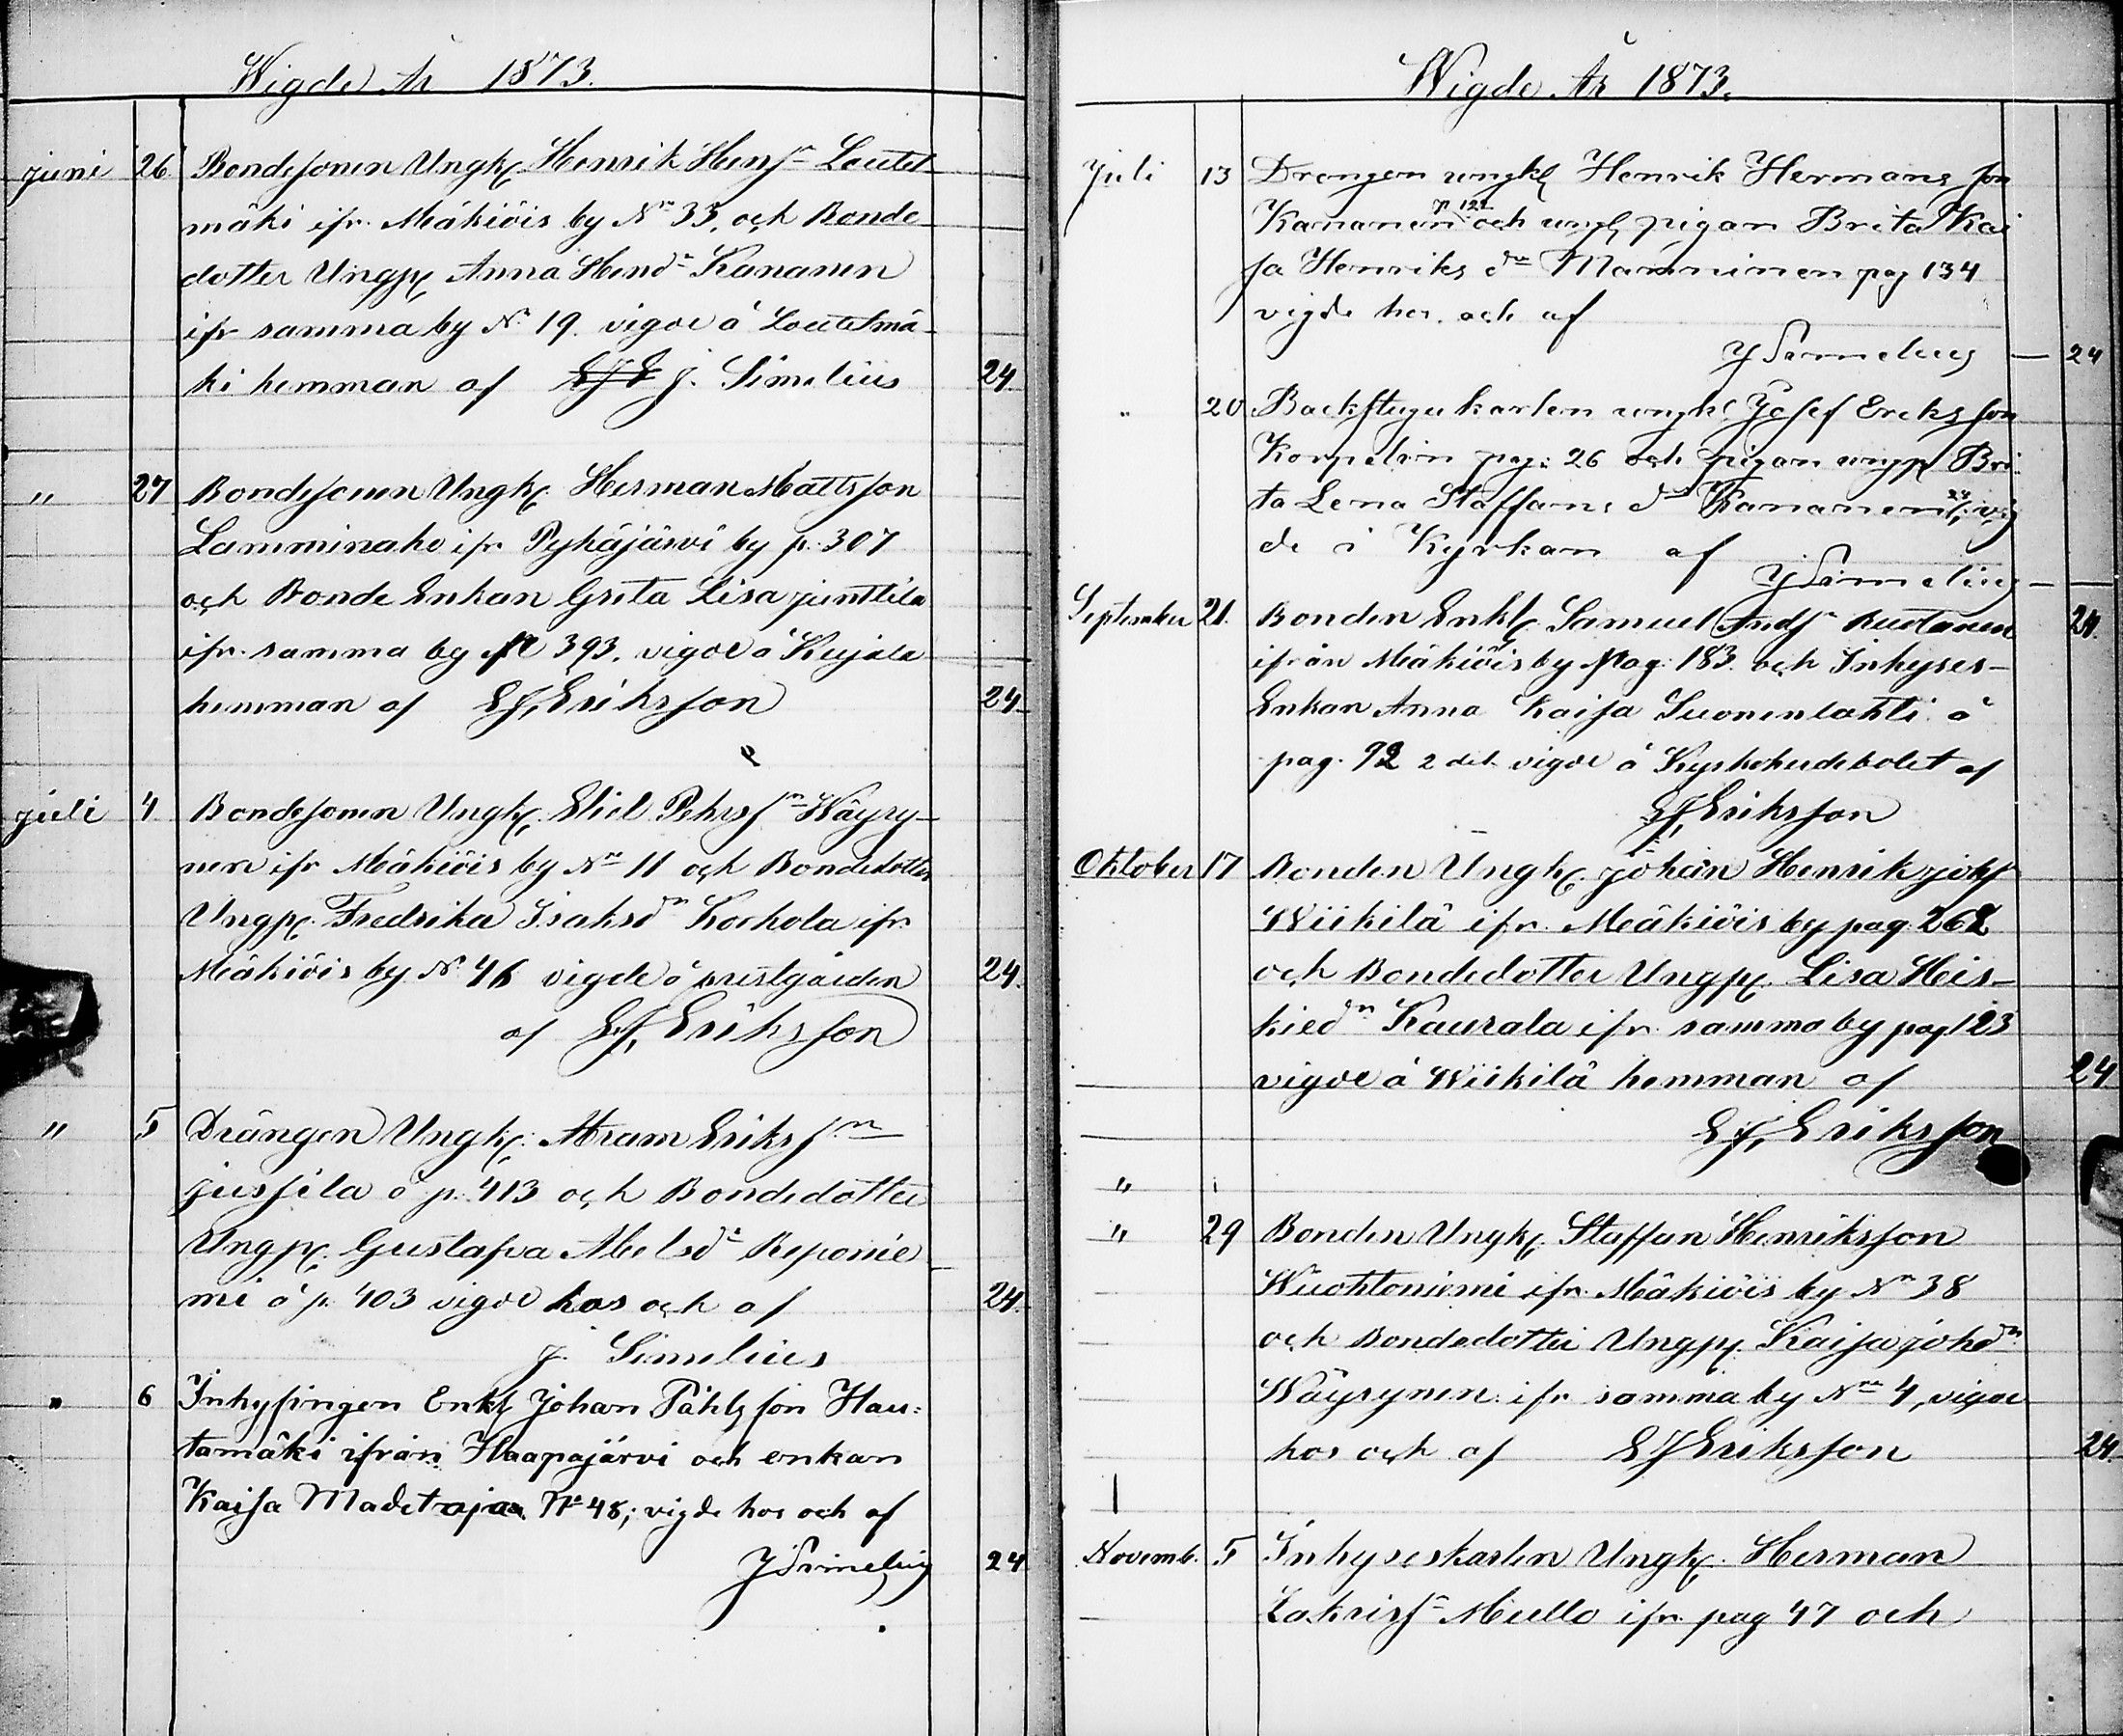 Wigde År 1873.
juni 26. Bondesonen Ungk. Henrik Hensn Loutet-
mäki ifr. Mäkiöis by No 33. och Bonde-
dotter Ungp. Anna Hendr Kananen
ifr samma by No 19. vigde å Loutetmä-
ki hemman af J. Simelius 24
" 27 Bondesonen Ungk. Herman Mattsson
Lamminaho ifr. Pyhäjärvi by p. 307
och Bonde Enkan Greta Lisa Junttila
ifr. samma by p 393. vigde å Kujala
hemman af E.J. Eriksson 24
juli 4 Bondesonen Ungk. Eliel Pehrssn Wäyry-
nen ifr Mäkiöis by No 11 och Bondedotter
Ungp. Fredrika Isaksdr Korkola ifr.
Mäkiöis by No 46 vigde å prestgården 24.
af E.J. Eriksson
" 5 Drängen Ungk. Abram Erikssn
Jussila å p. 413 och Bondedotter
Ungp. Gustafva Abelsdr Reponie-
mi å p. 403 vigde hos och af 24.
J. Simelius
" 6 Inhysingen Enkl Johan Påhlsson Hau-
tamäki ifrån Haapajärvi och enkan
Kaisa Madetoja No 48; vigde hos och af
J Simelius 24
Wigde År 1873.
Juli 13 Drengen ungkl Henrik Hermans son
Kananen p 122 och ungp pigan Brita Kai
sa Henriks dr Manninen pag 134
vigde hos och af
J Simelius — 24
" 20 Backstugukarlen ungkl Josef Ericks son
Korpelin pag: 26 och pigan ungp Bri
ta Lena Staffans dr Kananen 24; vig
de i Kyrkan af
J Simelius —
September 21. Bonden Enkl. Samuel Andsn Ruotanen 24.
ifrån Mäkiöis by Pag. 183. och Inhyses-
Enkan Anna Kaisa Suonenlahti å
pag. 92 2 del. vigde å Kyrkoherdebolet af
E.J. Eriksson
Oktober 17 Bonden Ungk. Johan Henrik Johs
Wiikilä ifr. Mäkiöis by pag. 262
och Bondedotter Ungp. Lisa Heis-
kiedr Kaurala ifr. samma by pag 123
vigde å Wiikilä hemman af 24
E.J. Eriksson
"
" 29 Bonden Ungk. Staffan Henriksson
Wuohtoniemi ifr. Mäkiöis by No 38
och Bondedotter Ungp. Kaisa Johdr
Wäyrynen ifr samma by No 4, vigde
hos och af E J Eriksson 24.
Novemb. 5 Inhyseskarlen Ungk. Herman
Zakrissn Mullo ifr. pag 47 och